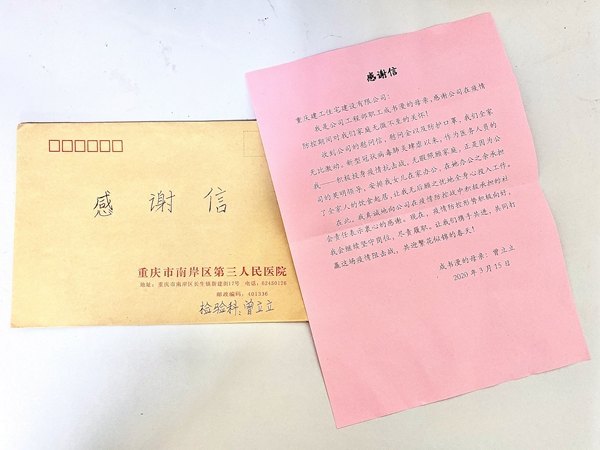 感谢信
重庆市南岸区第三人民医院
地址：重庆市南岸区长生镇新建街17号 电话：62450126
邮政编码：401336
检验科：曾立立
感谢信
重庆建工住宅建设有限公司：
我是公司工程部职工成书漫的母亲，感谢公司在疫情
防控期间对我们家庭无微不至的关怀！
收到公司的慰问信，慰问金以及防护口罩，我们全家
无比激动。新型冠状病毒肺炎肆虐以来，作为医务人员的
我——积极投身疫情抗击战，无暇照顾家庭，正是因为公
司的英明领导，安排我女儿在家办公，在她办公之余承担
了全家人的饮食起居，让我无后顾之忧地全身心投入工作。
在此，我真诚地向公司在疫情防控战中积极承担的社
会责任表示衷心的感谢。现在，疫情防控形势积极向好，
我会继续坚守岗位，尽责履职。让我们携手共进，共同打
赢这场疫情阻击战，共迎繁花似锦的春天！
成书漫的母亲：曾立立
2020年3月15日